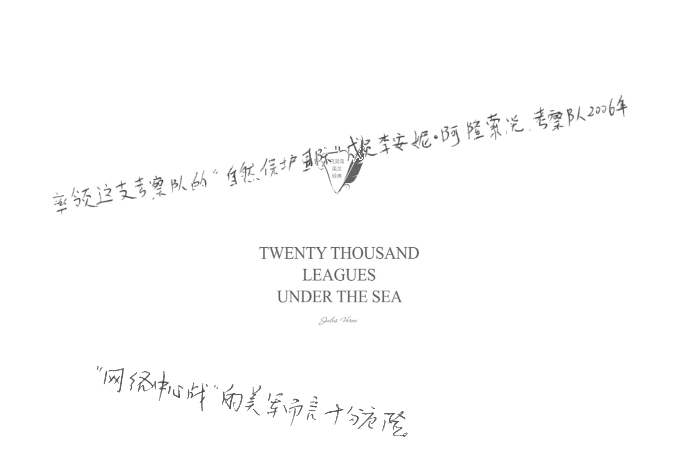 率领这支考察队的“自然保护国际”成员李安妮·阿隆索说,考察队2006年
TWENTY THOUSAND
LEAGUES
UNDER THE SEA
Jules Verne
“网络中心战”的美军而言十分危险。